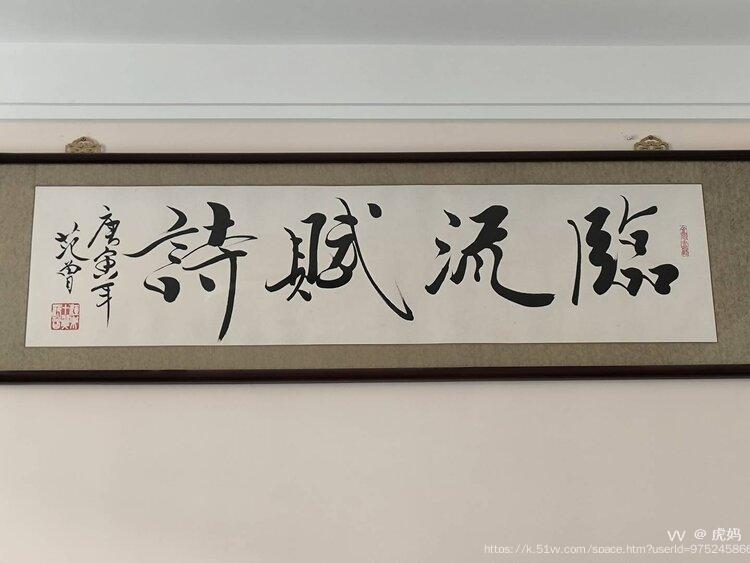 臨流賦詩
庚寅年
范曾
W @ 虎妈
https://k.51w.com/space.htm?userId=975245866